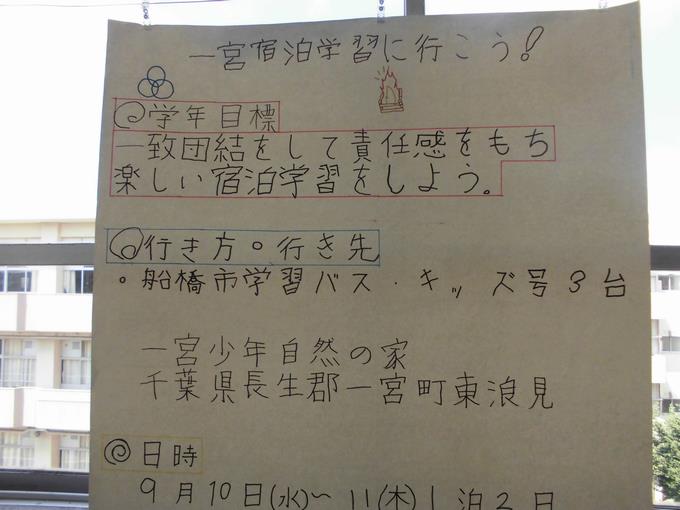 一宮宿泊学習に行こう!
◎学年目標
一致団結をして責任感をもち
楽しい宿泊学習をしよう。
◎行き方。行き先
。船橋市学習バス・キッズ号3台
一宮少年自然の家
千葉県長生郡一宮町東浪見
◎日時
9月10日(水)〜11(木)1泊2日